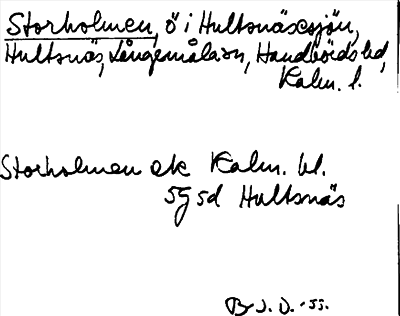 Storholmen, ö i Hultsnäsesjön,
Hultsnäs, Långemåla sn, Handbörds hd,
Kalm. l.
Storholmen ek Kalm. bl.
5g sd Hultsnäs